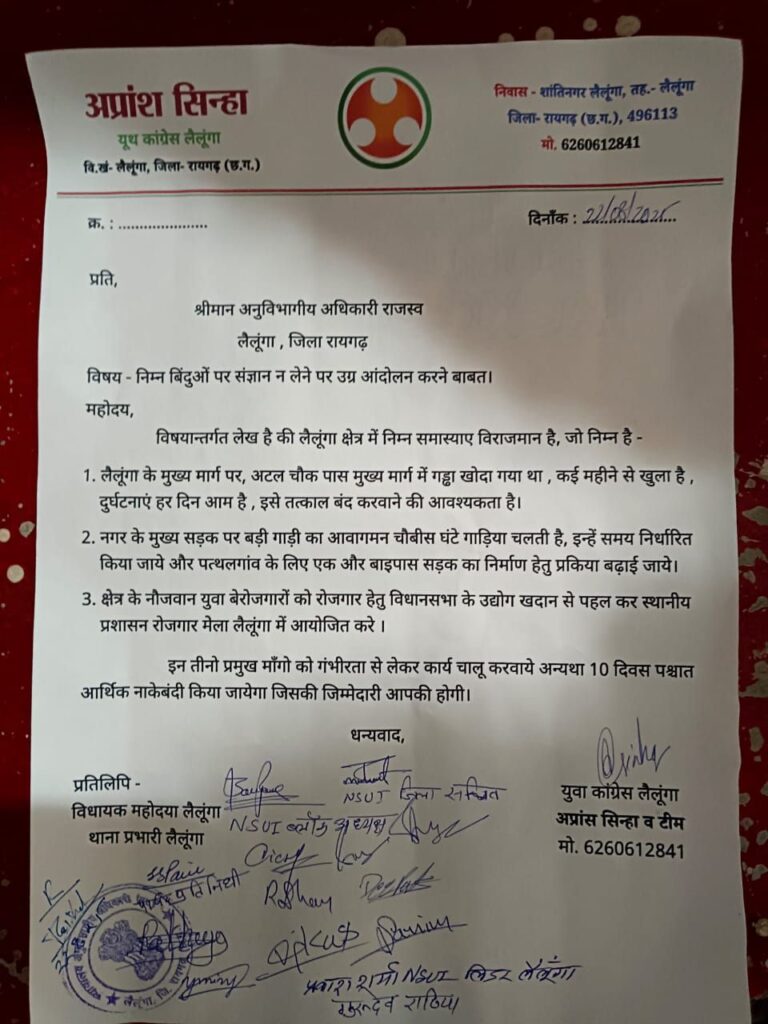 अप्रांश सिन्हा
यूथ कांग्रेस लैलूंगा
वि.खं- लैलूंगा, जिला- रायगढ़ (छ.ग.)
निवास - शांतिनगर लैलूंगा, तह.- लैलूंगा
जिला- रायगढ़ (छ.ग.), 496113
मो. 6260612841
क्र. : .....................
दिनाँक : 22/08/2025
प्रति,
श्रीमान अनुविभागीय अधिकारी राजस्व
लैलूंगा , जिला रायगढ़
विषय - निम्न बिंदुओं पर संज्ञान न लेने पर उग्र आंदोलन करने बाबत।
महोदय,
विषयान्तर्गत लेख है की लैलूंगा क्षेत्र में निम्न समास्याए विराजमान है, जो निम्न है -
1. लैलूंगा के मुख्य मार्ग पर, अटल चौक पास मुख्य मार्ग में गड्ढा खोदा गया था , कई महीने से खुला है ,
दुर्घटनाएं हर दिन आम है , इसे तत्काल बंद करवाने की आवश्यकता है।
2. नगर के मुख्य सड़क पर बड़ी गाड़ी का आवागमन चौबीस घंटे गाड़िया चलती है, इन्हें समय निर्धारित
किया जाये और पत्थलगांव के लिए एक और बाइपास सड़क का निर्माण हेतु प्रकिया बढ़ाई जाये।
3. क्षेत्र के नौजवान युवा बेरोजगारों को रोजगार हेतु विधानसभा के उद्योग खदान से पहल कर स्थानीय
प्रशासन रोजगार मेला लैलूंगा में आयोजित करे ।
इन तीनो प्रमुख माँगो को गंभीरता से लेकर कार्य चालू करवाये अन्यथा 10 दिवस पश्चात
आर्थिक नाकेबंदी किया जायेगा जिसकी जिम्मेदारी आपकी होगी।
धन्यवाद,
प्रतिलिपि -
विधायक महोदया लैलूंगा
थाना प्रभारी लैलूंगा
युवा कांग्रेस लैलूंगा
अप्रांस सिन्हा व टीम
मो. 6260612841
NSUI जिला सचिव
NSUI ब्लॉक अध्यक्ष
प्रतिनिधी
प्रकाश शर्मा NSUI लिडर लैलूँगा
गुरूदेव राठिया
लैलूंगा, जि. रायगढ़